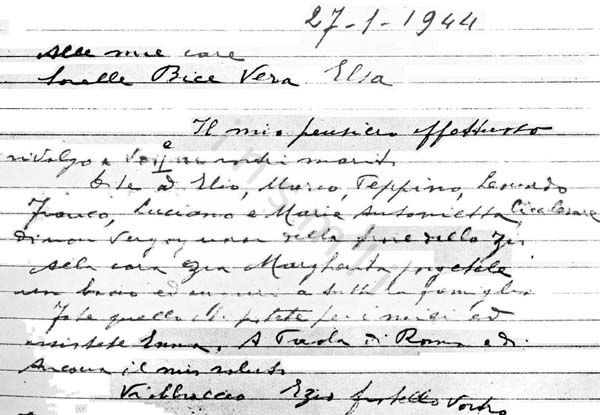 27-1-1944
Alle mie care
Sorelle Bice Vera Elsa
Il mio pensiero affettuoso
rivolgo a Voi e ai vostri mariti
Dite ad Elio, Marco, Peppino, Leonardo
Franco, Luciano e Maria Antonietta, Cicci Cesare
di non vergognarsi della fine dello Zio
Alla cara zia Margherita porgetele
un bacio ed a tutta la famiglia
Fate quello che potete per i miei ed
assistete Emma. A Paola di Roma e di
Ancona il mio saluto
Vi abbraccio Ezio fratello Vostro